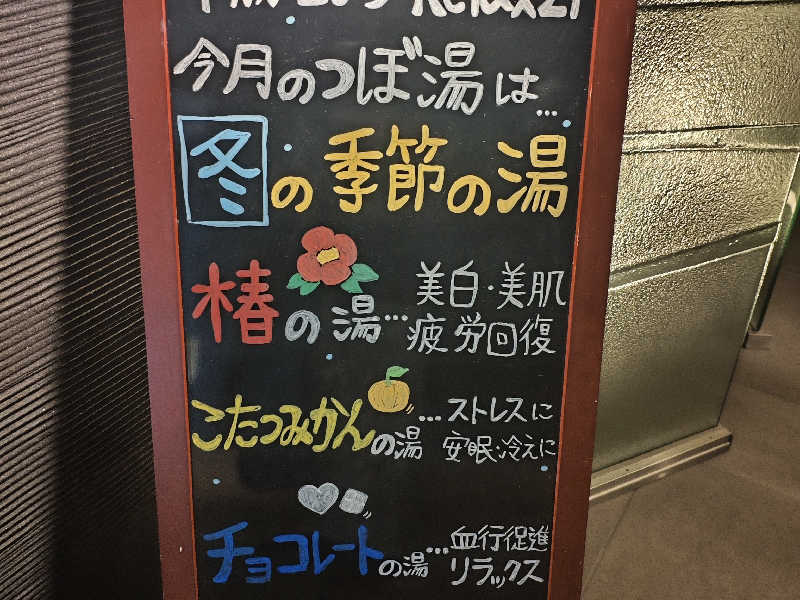 今月のつぼ湯は…
冬の季節の湯
椿の湯…美白・美肌
疲労回復
こたつみかんの湯…ストレスに
安眠・冷えに
チョコレートの湯…血行促進
リラックス